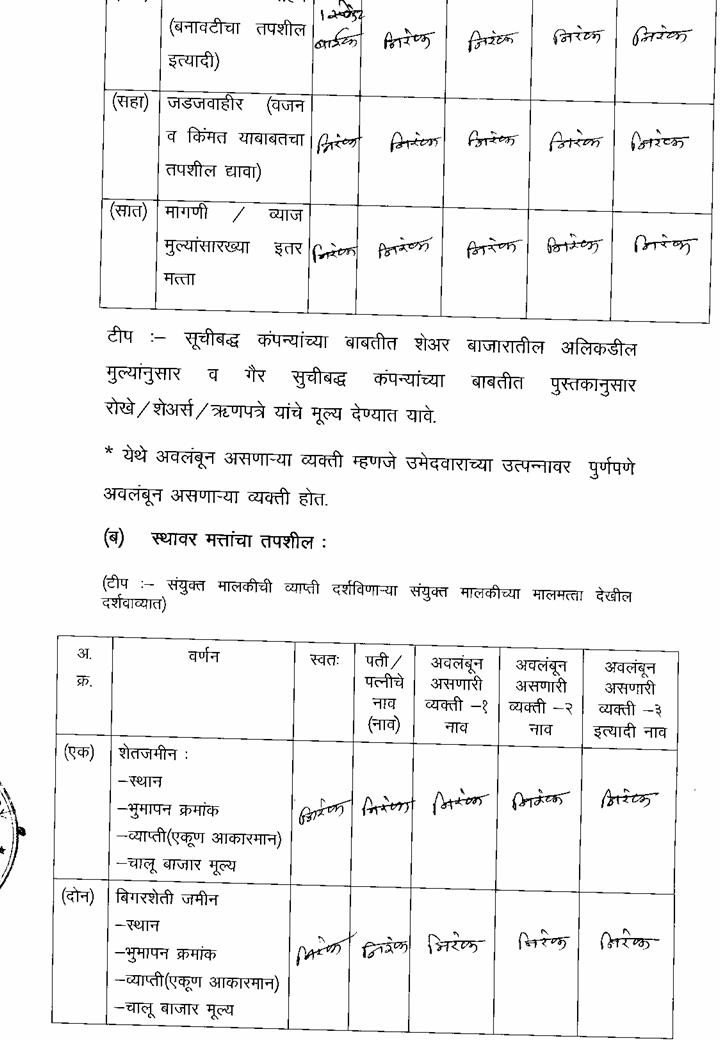 (बनावटीचा तपशील
इत्यादी)
बाईक निरंक निरंक निरंक निरंक
(सहा) जडजवाहीर (वजन
व किंमत याबाबतचा
तपशील द्यावा)
निरंक निरंक निरंक निरंक निरंक
(सात) मागणी / व्याज
मुल्यांसारख्या इतर
मत्ता
निरंक निरंक निरंक निरंक निरंक
टीप :– सूचीबद्ध कंपन्यांच्या बाबतीत शेअर बाजारातील अलिकडील
मुल्यांनुसार व गैर सुचीबद्ध कंपन्यांच्या बाबतीत पुस्तकानुसार
रोखे/शेअर्स/ऋणपत्रे यांचे मूल्य देण्यात यावे.
* येथे अवलंबून असणाऱ्या व्यक्ती म्हणजे उमेदवाराच्या उत्पन्नावर पुर्णपणे
अवलंबून असणाऱ्या व्यक्ती होत.
(ब) स्थावर मत्तांचा तपशील :
(टीप :– संयुक्त मालकीची व्याप्ती दर्शविणाऱ्या संयुक्त मालकीच्या मालमत्ता देखील
दर्शवाव्यात)
अ.
क्र.
वर्णन
स्वतः
पती/
पत्नीचे
नाव
(नाव)
अवलंबून
असणारी
व्यक्ती –१
नाव
अवलंबून
असणारी
व्यक्ती –२
नाव
अवलंबून
असणारी
व्यक्ती –३
इत्यादी नाव
(एक) शेतजमीन :
–स्थान
–भुमापन क्रमांक
–व्याप्ती(एकूण आकारमान)
–चालू बाजार मूल्य
निरंक निरंक निरंक निरंक निरंक
(दोन) बिगरशेती जमीन
–स्थान
–भुमापन क्रमांक
–व्याप्ती(एकूण आकारमान)
–चालू बाजार मूल्य
निरंक निरंक निरंक निरंक निरंक